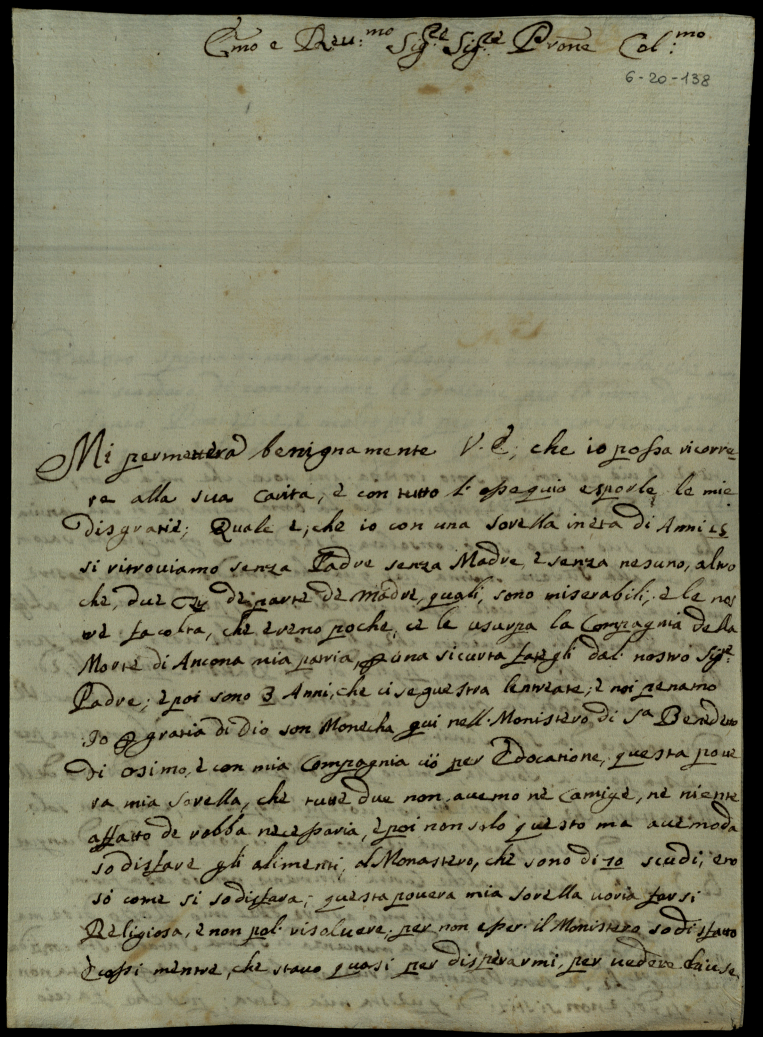 Emo e Reu:mo Sigre Sigre Prone Col:mo
6-20-138
Mi permetterà benignamente V. E., che io possa ricorre=
re alla sua Carita, e con tutto l'ossequio esporle le mie
disgratie; Quale è, che io con una sorella in età di Anni 25
si ritroviamo senza Padre senza Madre, e senza nesuno, altro
che, due Zy de parte de Madre, quali, sono miserabili, e le nos
tre facolta, che ereno poche, ce le usurpa la Compagnia della
Morte di Ancona mia patria, p una sicurta fategli dal nostro Sigre
Padre; e poi sono 3 Anni, che ci sequestra le ntrate; e noi penamo
Io p gratia di Dio son Monecha qui nell Monistero di Sa Benedetto
di osimo, e con mia Compagnia ciò per Edocatione, questa poue
ra mia sorella, che tutte due non avemo ne Camige, ne niente
affatto de robba necessaria, e poi non solo questo ma avemo da
sodisfare gli alimenti, al Monastero, che sono di 70 scudi, ero
so come si sodisfara; questa povera mia sorella voria farsi
Religiosa, e non pol risolvere, per non esser il Monistero sodisfatto
e cossi mentre, che stavo quasi per disperarmi, per vedere